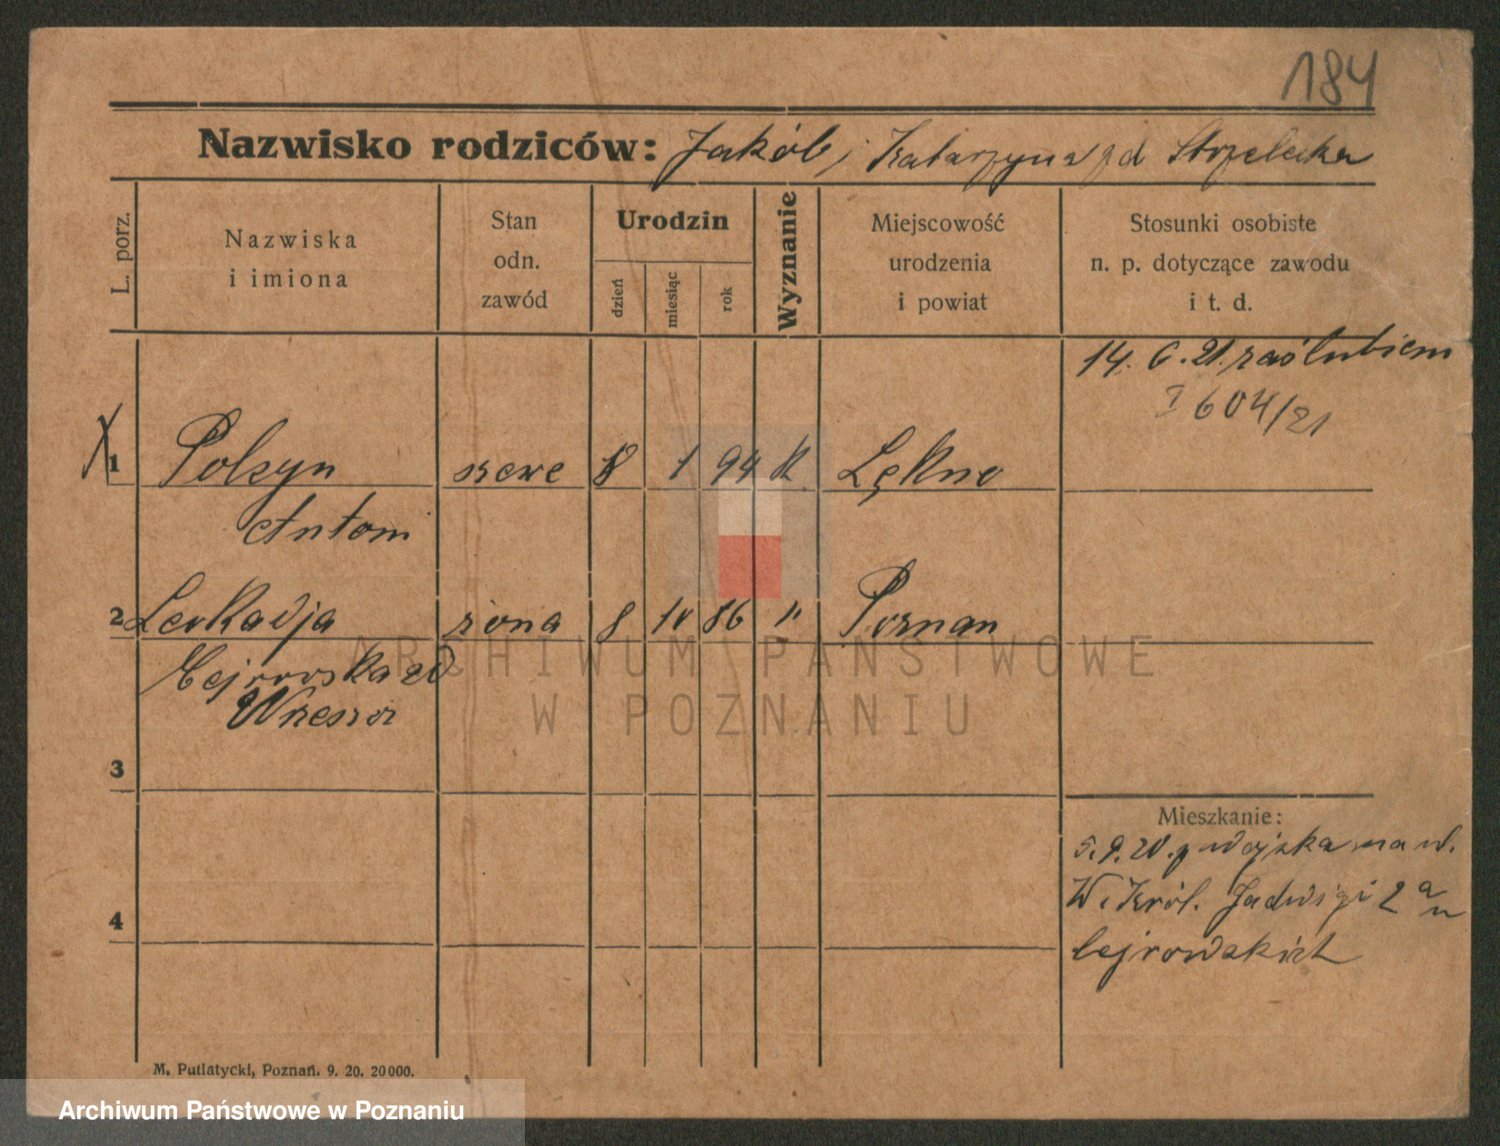 184
Nazwisko rodziców: Jakób i Katarzyna zd Strzelecka
L. porz.
Nazwiska
i imiona
Stan
odn.
zawód
Urodzin
dzień
miesiąc
rok
Wyznanie
Miejscowość
urodzenia
i powiat
Stosunki osobiste
n. p. dotyczące zawodu
i t. d.
14. 6. 21. zaślubieni
I 604/21
1 Polzyn szewc 18 1 94 K Łękno
Antoni
2 Leokadja żona 8 10 86 " Poznan
Cejrowska zd
3
4
Mieszkanie:
5.9.20. z wojska na ul.
W. Król. Jadwigi 2a
u
Cejrowskich
M. Putiatycki, Poznań. 9. 20. 20000.
ARCHIWUM PAŃSTWOWE
W POZNANIU
Archiwum Państwowe w Poznaniu